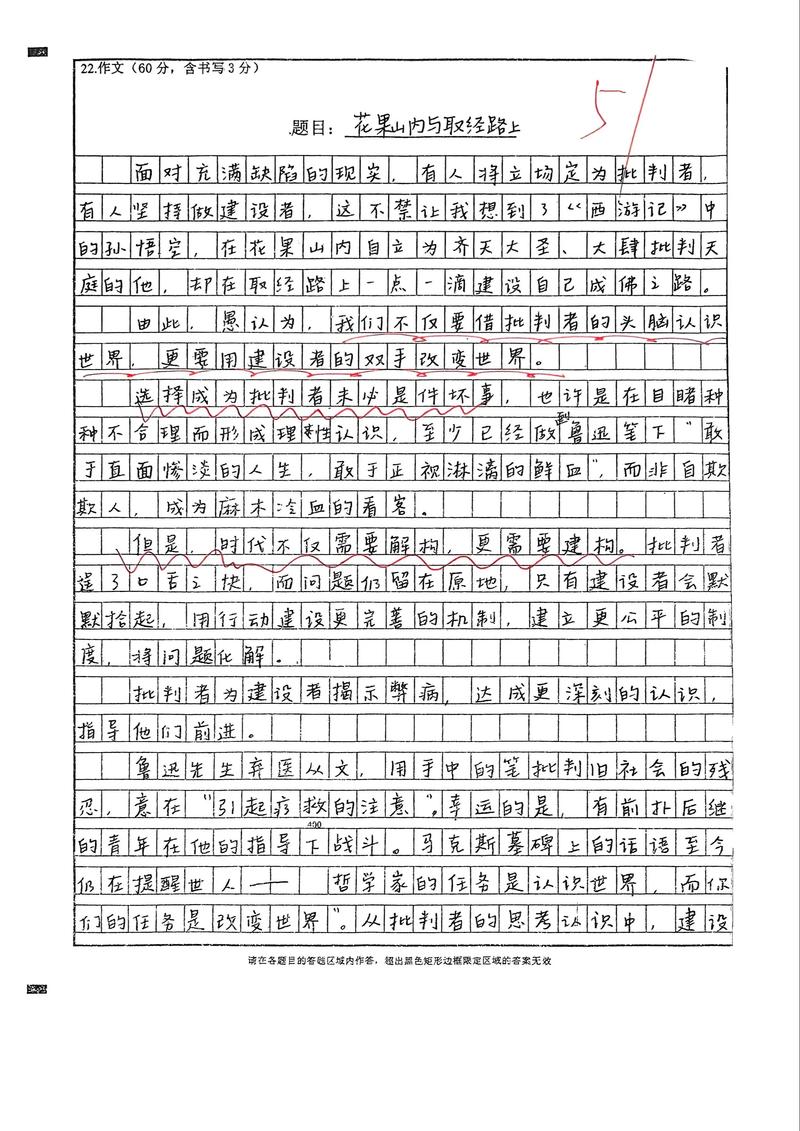 22.作文（60分，含书写3分）
51
题目：花果山内与取经路上
面对充满缺陷的现实，有人将立场定为批判者，
有人坚择做建设者，这不禁让我想到了《西游记》中
的孙悟空，在花果山内自立为齐天大圣、大肆批判天
庭的他，却在取经路上一点一滴建设自己成佛之路。
由此，愚认为，我们不仅要借批判者的头脑认识
世界，更要用建设者的双手改变世界。
选择成为批判者未必是件坏事，也许是在目睹种
种不合理而形成理性认识，至少已经做到鲁迅笔下“敢
于直面惨淡的人生，敢于正视淋漓的鲜血”，而非自欺
欺人，成为麻木冷血的看客。
但是，时代不仅需要解构，更需要建构。批判者
逞了口舌之快，而问题仍留在原地，只有建设者会默
默拾起，用行动建设更完善的机制，建立更公平的制
度，将问题化解。
批判者为建设者揭示弊病，达成更深刻的认识，
指导他们前进。
鲁迅先生弃医从文，用手中的笔批判旧社会的残
忍，意在“引起疗救的注意”。幸运的是，有前扑后继
的青年在他的指导下战斗。马克斯墓碑上的话语至今
400
仍在提醒世人—— 哲学家的任务是认识世界，而你
们的任务是改变世界”。从批判者的思考认识中，建设
请在各题目的答题区域内作答，超出黑色矩形边框限定区域的答案无效